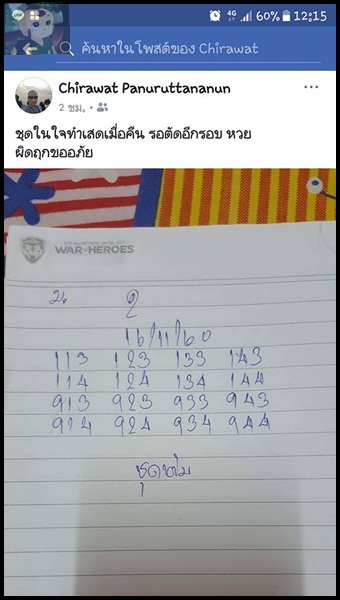 4G 60% 12:15
ค้นหาในโพสต์ของ Chirawat
Chirawat Panuruttananun
2 ชม.
ชุดในใจทำเสดเมื่อคืน รอตัดอีกรอบ หวย
ผิดถูกขออภัย
WAR OF HEROES
น
16/11/60
113 123 133 143
114 124 134 144
913 923 933 943
914 924 934 944